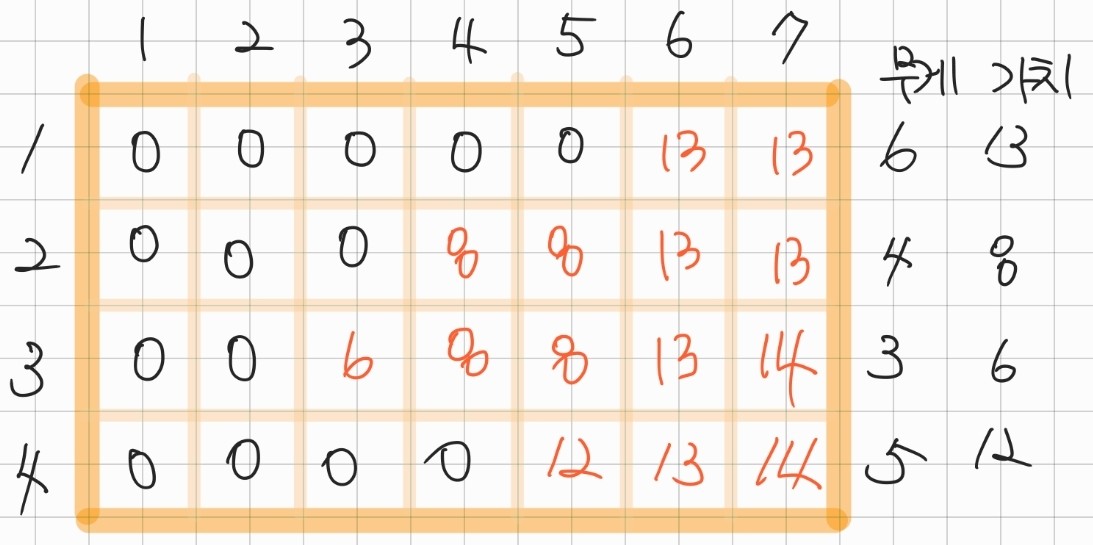 1 2 3 4 5 6 7 무게 가치
1 0 0 0 0 0 13 13 6 13
2 0 0 0 8 8 13 13 4 8
3 0 0 6 8 8 13 14 3 6
4 0 0 0 0 12 13 14 5 12